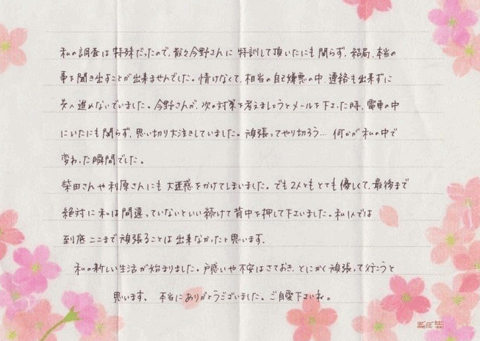 私の調査は特殊だったので、散々今野さんに特訓して頂いたにも関らず、結局、本当の
事を聞き出すことが出来ませんでした。情けなくて、相当の自己嫌悪の中、連絡も出来ずに
先へ進めないでいました。今野さんが、次の対策を考えましょうとメールを下さった時、電車の中
にいたにも関らず、思い切り大泣きしていました。頑張ってやり切ろう… 何かが私の中で
変わった瞬間でした。
柴田さんや村原さんにも大迷惑をかけてしまいました。でも2人ともとても優しくて、最後まで
絶対に私は間違っていないといい続けて背中を押して下さいました。私1人では
到底ここまで頑張ることは出来なかったと思います。
私の新しい生活が始まりました。戸惑いや不安はさておき、とにかく頑張って行こうと
思います。本当にありがとうございました。ご自愛下さいね。